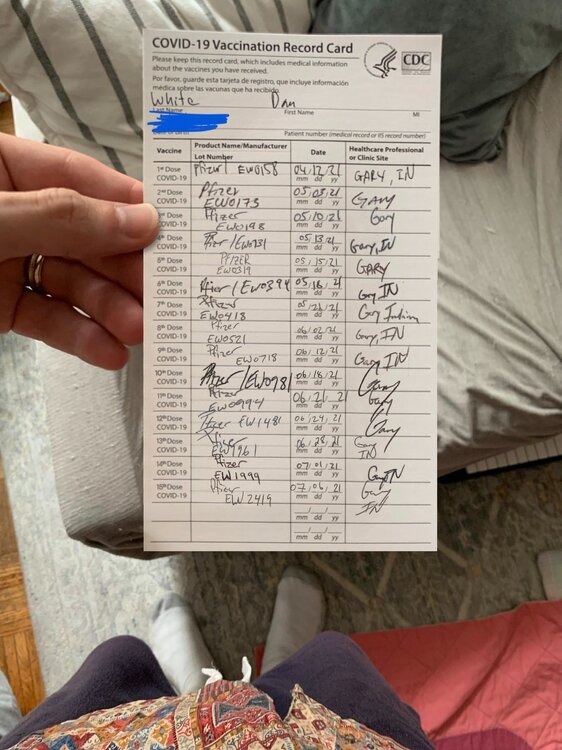 COVID-19 Vaccination Record Card
CDC
Please keep this record card, which includes medical information
about the vaccines you have received.
Por favor, guarde esta tarjeta de registro, que incluye información
médica sobre las vacunas que ha recibido.
White Dan
Last Name First Name MI
Date of birth Patient number (medical record or IIS record number)
Vaccine Product Name/Manufacturer Date Healthcare Professional
Lot Number or Clinic Site
1st Dose Pfizer/ EW0158 04/12/21 GARY, IN
COVID-19 mm dd yy
2nd Dose Pfizer 05/03/21 Gary
COVID-19 EW0173 mm dd yy
3rd Dose Pfizer 05/10/21 Gary
COVID-19 EW0198 mm dd yy
4th Dose Pfizer/EW0231 05/13/21 Gary, IN
COVID-19 mm dd yy
5th Dose PFIZER 05/15/21 GARY
COVID-19 EW0319 mm dd yy
6th Dose Pfizer/EW0394 05/18/21 Gary IN
COVID-19 mm dd yy
7th Dose Pfizer 05/21/21 Gary Indiana
COVID-19 EW0418 mm dd yy
8th Dose Pfizer 06/02/21 Gary, IN
COVID-19 EW0521 mm dd yy
9th Dose Pfizer 06/12/21 Gary IN
COVID-19 EW0718 mm dd yy
10th Dose Pfizer/EW0981 06/18/21 Gary
COVID-19 mm dd yy
11th Dose Pfizer 06/21/21 Gary
COVID-19 EW0994 mm dd yy
12th Dose Pfizer EW1481 06/24/21 Gary
COVID-19 mm dd yy
13th Dose Pfizer 06/28/21 Gary
COVID-19 EW1961 mm dd yy IN
14th Dose Pfizer 07/01/21 Gary IN
COVID-19 EW1999 mm dd yy
15th Dose Pfizer 07/06/21 Gary
COVID-19 EW2419 mm dd yy IN
mm dd yy
mm dd yy